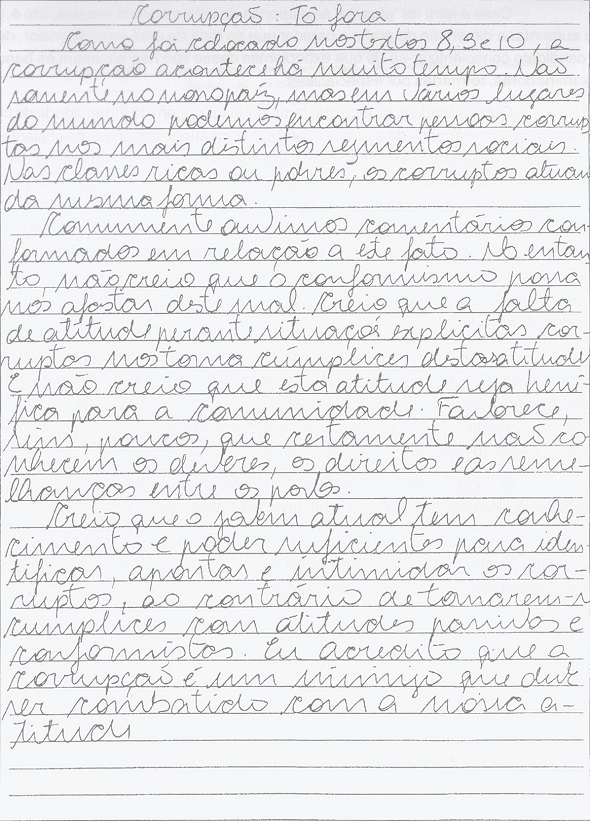 Corrupção: Tô fora
Como foi colocado nos textos 8, 9 e 10, a
corrupção acontece há muito tempo. Não
somente no nosso país, mas em vários lugares
do mundo podemos encontrar pessoas corrup
tas nos mais distintos segmentos sociais.
Nas classes ricas ou pobres, os corruptos atuam
da mesma forma.
Comumente ouvimos comentários con-
formados em relação a este fato. No entan-
to, não creio que o conformismo possa
nos afastar deste mal. Creio que a falta
de atitude perante situações explícitas cor-
ruptas nos torna cúmplices destas atitudes
E não creio que esta atitude seja bené-
fica para a comunidade. Favorece,
sim, poucos, que certamente não co
nhecem os deveres, os direitos e as seme-
lhanças entre os povos.
Creio que o jovem atual tem conhe-
cimento e poder suficientes para iden-
tificar, apontar e intimidar os cor-
ruptos, ao contrário de tornarem-s
cumplices com atitudes passivas e
conformistas. Eu acredito que a
corrupção é um inimigo que deve
ser combatido com a nossa a-
titude